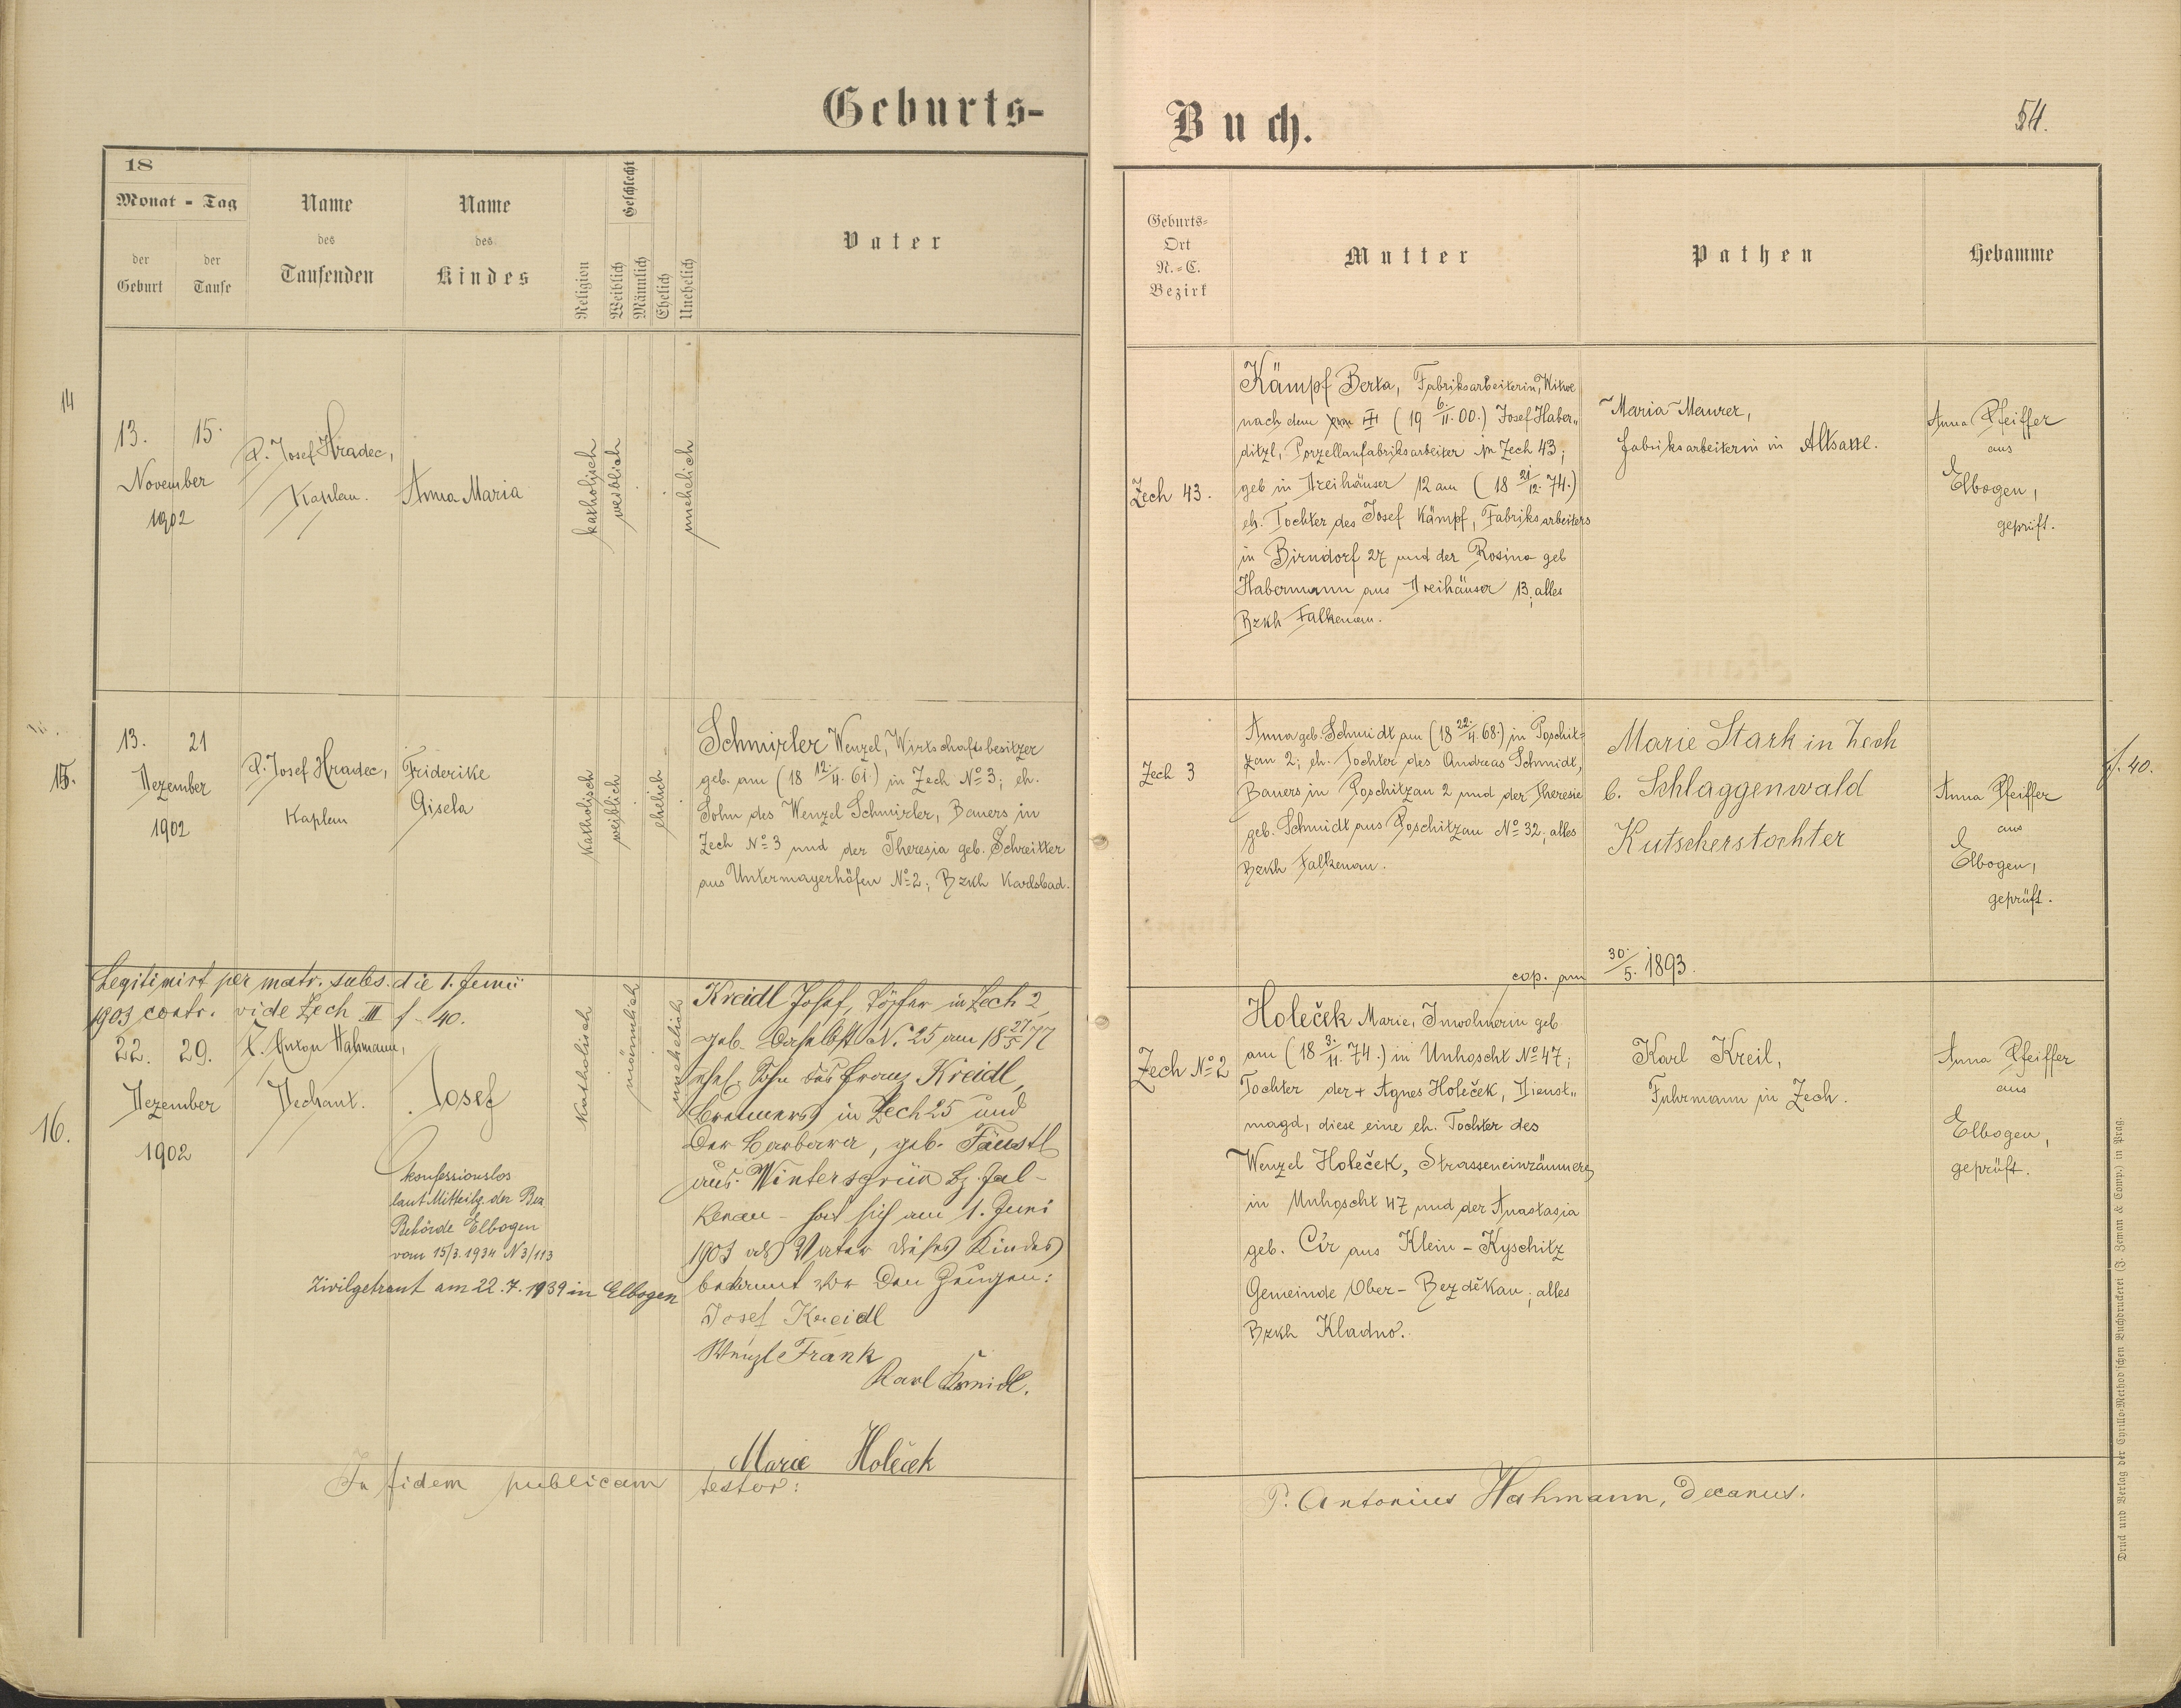 Geburts-
Buch.
54.
18
Monat - Tag
der Geburt
der Taufe
Name des Taufenden
Name des Kindes
Religion
Geschlecht
Weiblich
Männlich
Ehelich
Unehelich
Vater
Geburts-
Ort
N.-C.
Bezirk
Mutter
Pathen
Hebamme
14
13. 15.
November
1902
P. Josef Hradec,
Kaplan.
Anna Maria
katholisch
weiblich
unehelich
Zech 43.
Kämpf Berta, Fabriksarbeiterin, Witwe
nach dem am ✝ (19 6./II. 00.) Josef Haber„
ditzl, Porzellanfabriksarbeiter in Zech 43;
geb in Dreihäuser 12 am (18 21/12. 74.)
eh. Tochter des Josef Kämpf, Fabriksarbeiters
in Birndorf 27 und der Rosina geb
Habermann aus Dreihäuser 13; alles
Bzkh Falkenau.
Maria Maurer,
Fabriksarbeiterin in Altsattl.
Anna Pfeiffer
aus
Elbogen,
geprüft.
15.
13. 21
Dezember
1902
P. Josef Hradec,
Kaplan
Friderike
Gisela
katholisch
weiblich
ehelich
Schmirler Wenzel, Wirtschaftsbesitzer
geb. am (18 12/4. 61.) in Zech No 3; eh.
Sohn des Wenzel Schmirler, Bauers in
Zech No 3 und der Theresia geb. Schreitter
aus Untermayerhöfen No 2; Bzkh Karlsbad.
Zech 3
Anna geb. Schmidt am (18 22./4. 68.) in Poschit=
zau 2; eh. Tochter des Andreas Schmidt,
Bauers in Poschitzau 2 und der Theresie
geb. Schmidt aus Poschitzau No 32; alles
Bzkh Falkenau.
cop. am 30./5. 1893.
Marie Stark in Zech
b. Schlaggenwald
Kutscherstochter
Anna Pfeiffer
aus
Elbogen,
geprüft.
f. 40.
Legitimirt per matr. subs. die 1. Junii
1903 contr. vide Zech III f - 40.
16.
22. 29.
Dezember
1902
P. Anton Hahmann,
Dechant.
Josef
konfessionslos
laut Mitteilg. der Bez
Behörde Elbogen
vom 15/3. 1934 N 3/113
Zivilgetraut am 22. 7. 1939 in Elbogen
katholisch
männlich
unehelich
Kreidl Josef, Töpfer in Zech 2,
geb. daselbst N. 25 am 18 27/5 77
ehel. Sohn des Franz Kreidl,
in Zech 25 und
der Barbara, geb. Fäustl
aus Wintersgrün Bz. Fal-
kenau - hat sich am 1. Juni
1903 als Vater dieses Kindes
bekannt vor den Zeugen:
Josef Kreidl
Wenzl Frank
Karl
Marie Holeček
Zech No 2
Holeček Marie, Inwohnerin geb
am (18 3./11. 74.) in Unhoscht No 47;
Tochter der + Agnes Holeček, Dienst„
magd, diese eine eh. Tochter des
Wenzel Holeček, Strasseneinräumers
in Unhoscht 47 und der Anastasia
geb. Cír aus Klein-Kyschitz
Gemeinde Ober-Bezděkau; alles
Bzkh Kladno.
Karl Kreil,
Fuhrmann in Zech.
Anna Pfeiffer
aus
Elbogen,
geprüft.
In fidem publicam testor:
P. Antonius Hahmann, Decanus.
Druck und Verlag der Cyrillo-Method'schen Buchdruckerei (J. Zeman & Comp.) in Prag.